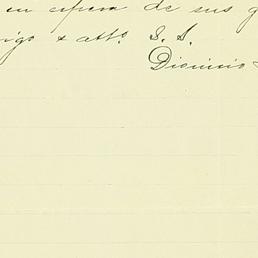 en espera de sus g
igo & atto. S. S.
Dionicio